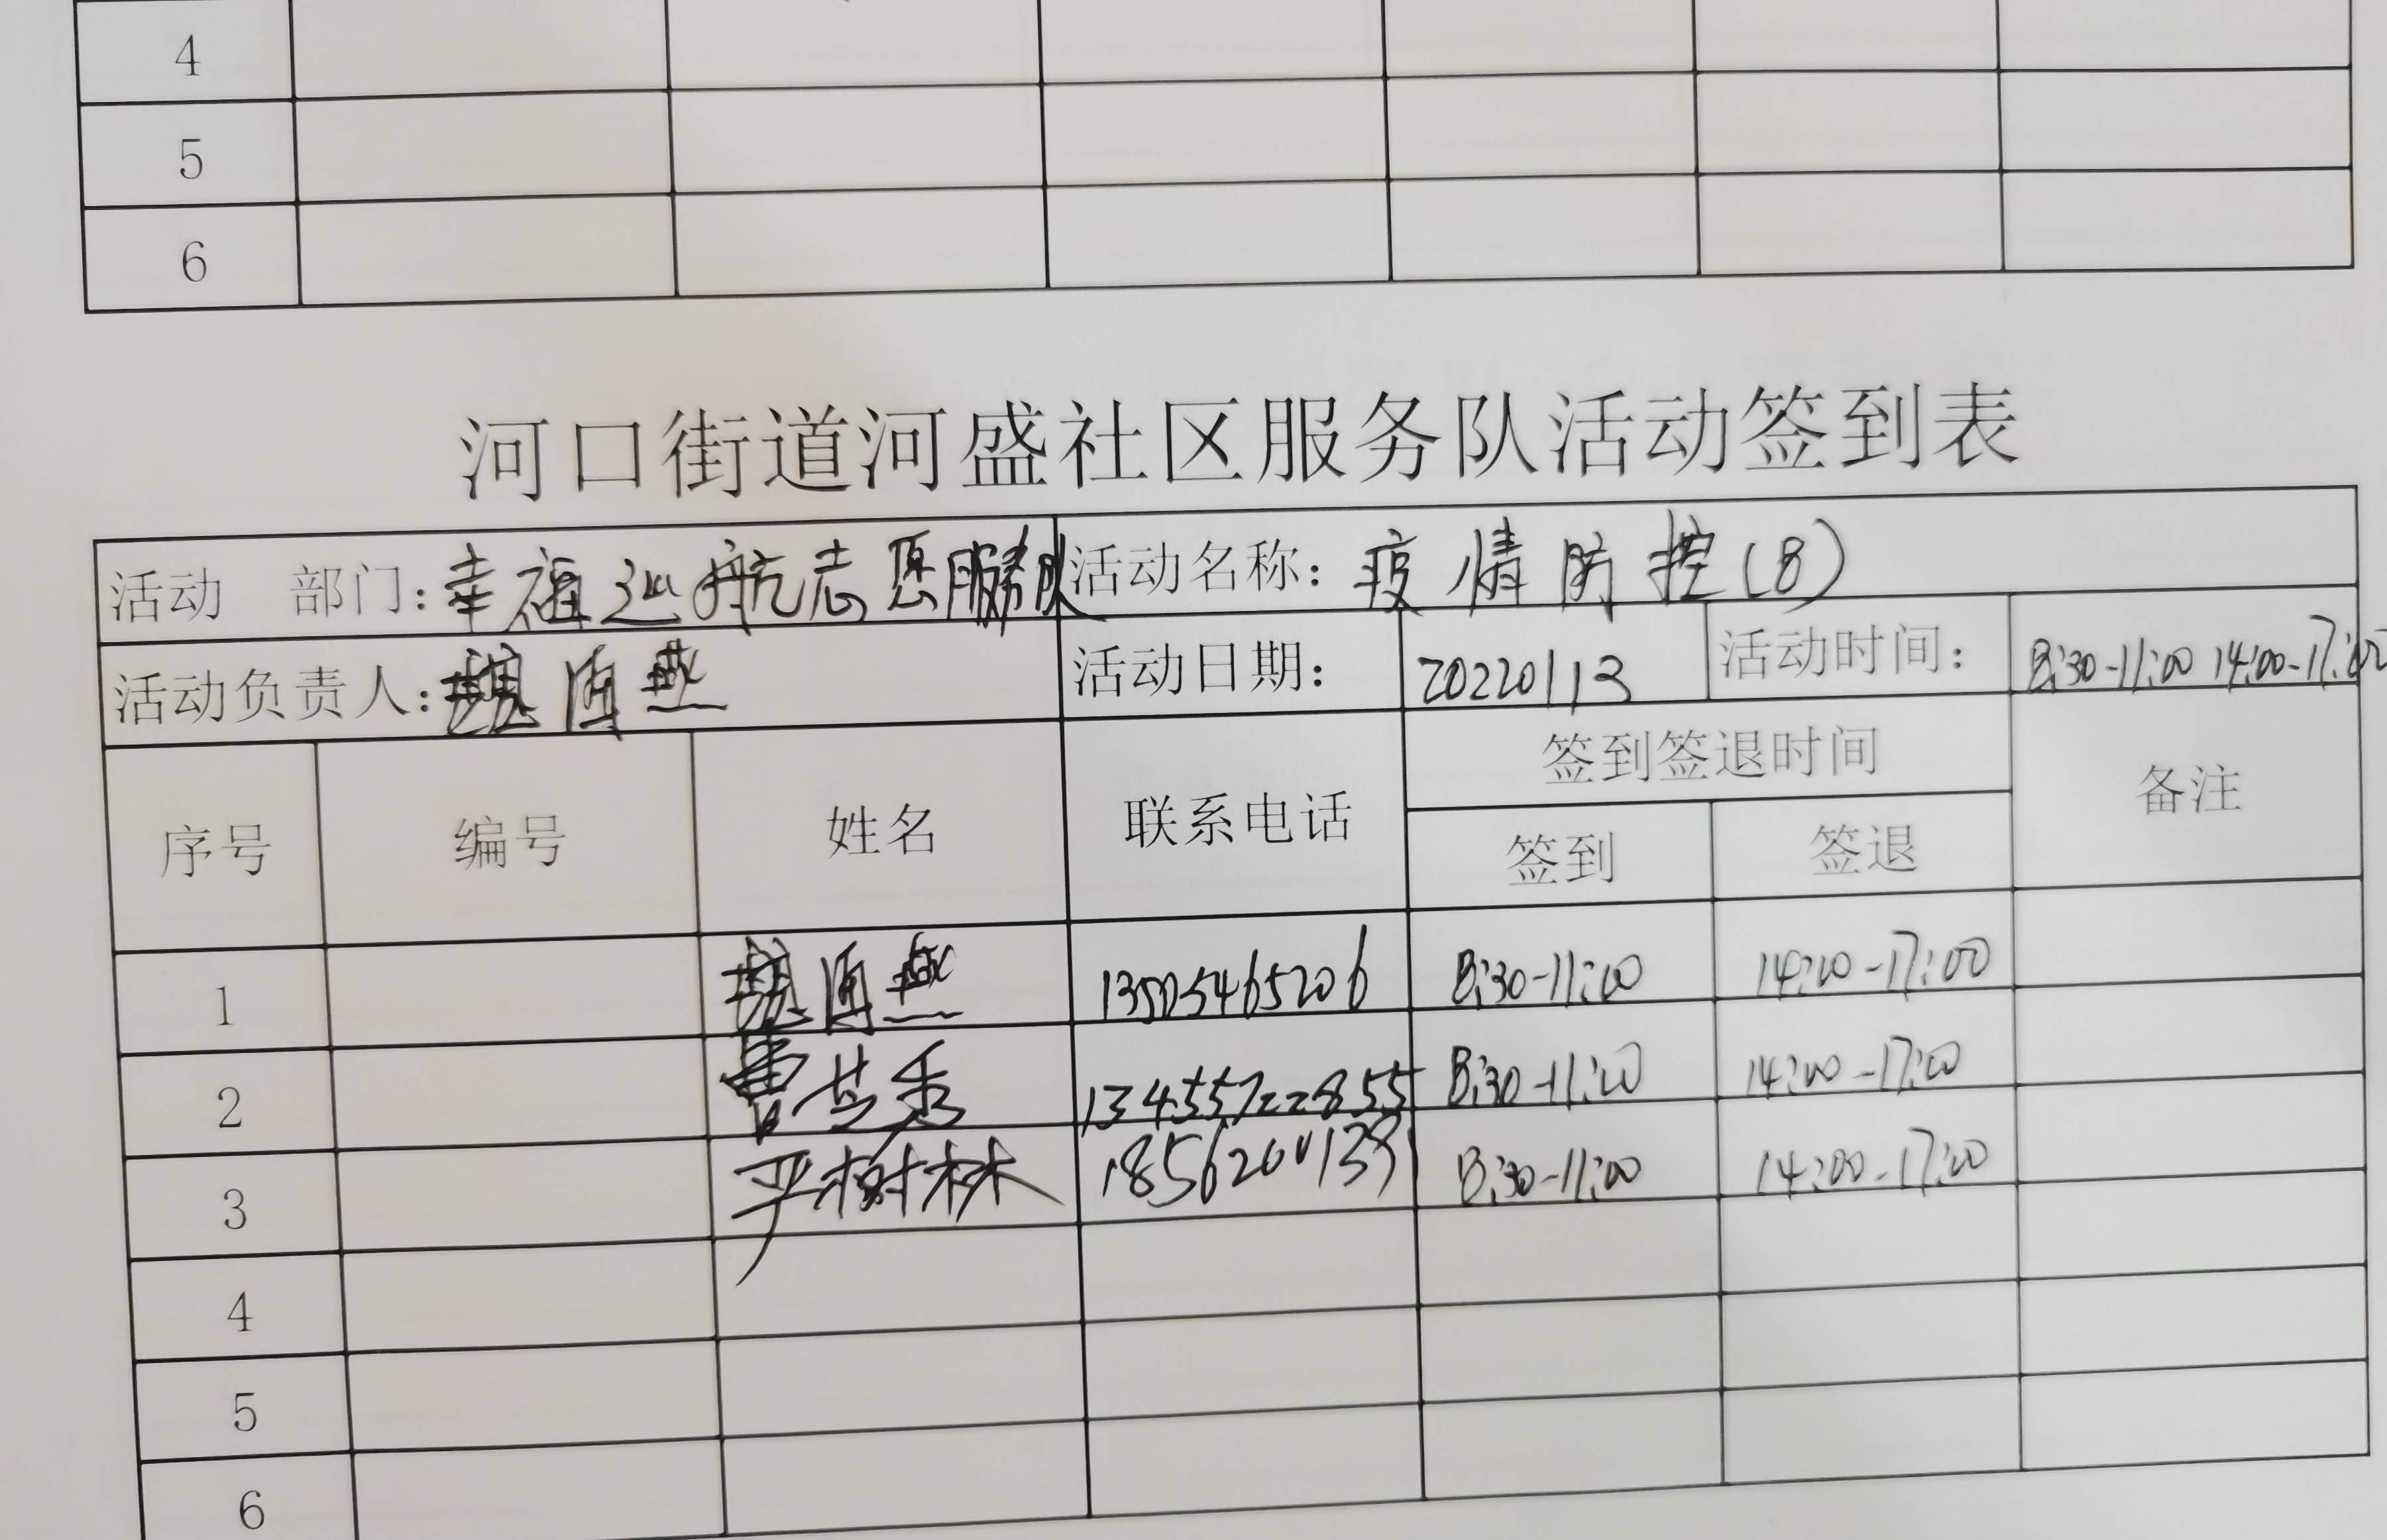 4
5
6
河口街道河盛社区服务队活动签到表
活动 部门：幸福巡航志愿服务队 活动名称：疫情防控(8)
活动负责人： 燕 活动日期： 20220113 活动时间： 8:30-11:00 14:00-17:00
序号 编号 姓名 联系电话 签到签退时间 备注
签到 签退
1 燕 13505465206 8:30-11:00 14:00-17:00
2 曹兰香 13455722855 8:30-11:00 14:00-17:00
3 严树林 8:30-11:00 14:00-17:00
4
5
6